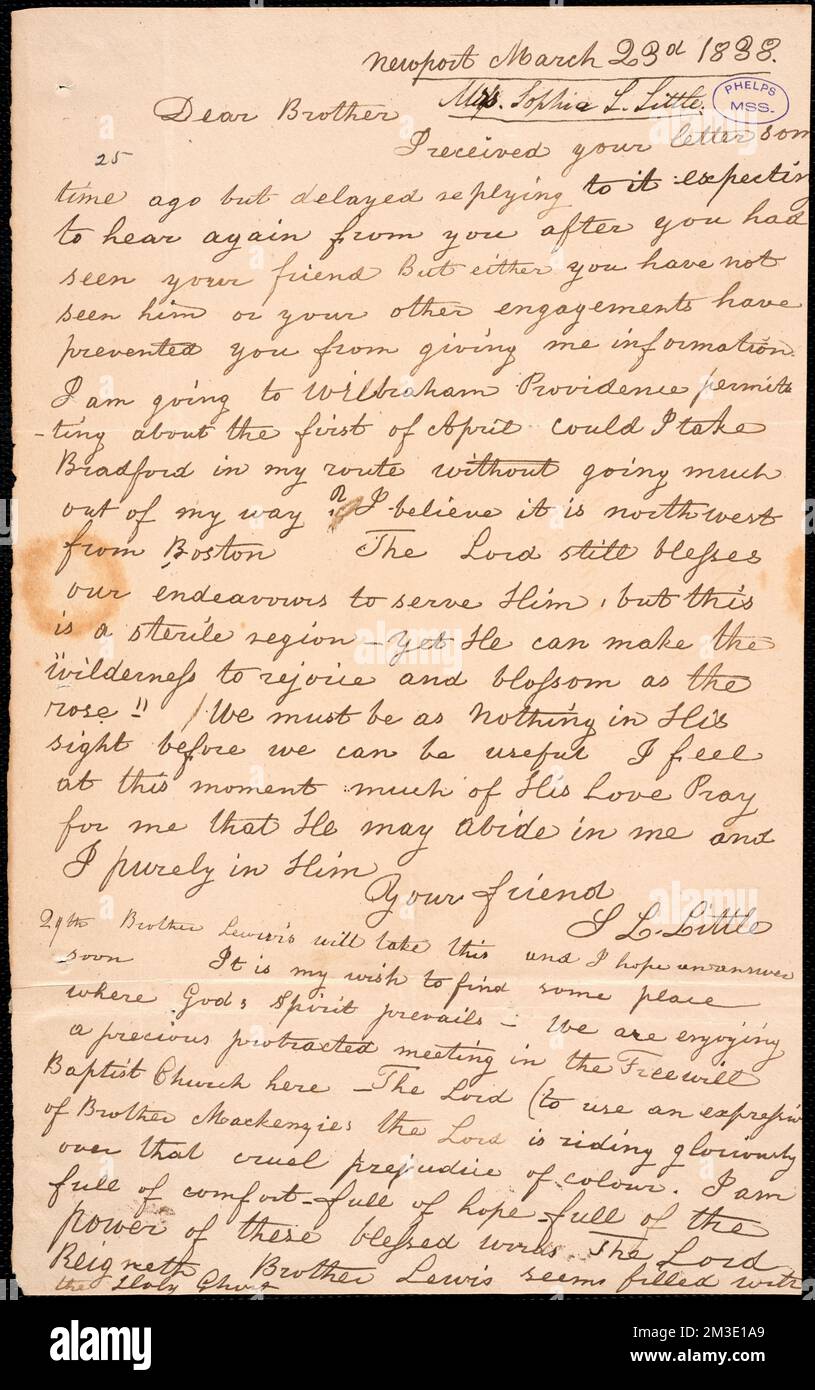 Newport March 23d 1838.
Mrs. Sophia L. Little.
PHELPS
MSS.
Dear Brother
I received your letter som
25
time ago but delayed replying to it expectin
to hear again from you after you had
seen your friend But either you have not
seen him or your other engagements have
prevented you from giving me information.
I am going to Wilbraham Providence permit
-ting about the first of April could I take
Bradford in my route without going much
out of my way ? I believe it is northwest
from Boston The Lord still blesses
our endeavours to serve Him, but this
is a sterile region - yet He can make the
"wilderness to rejoice and blossom as the
rose" We must be as nothing in His
sight before we can be useful I feel
at this moment much of His Love Pray
for me that He may abide in me and
I purely in Him
Your friend
S L. Little
29th Brother Lewis will take this and I hope an answer
soon It is my wish to find some place
where Gods Spirit prevails - We are enjoying
a precious protracted meeting in the Freewill
Baptist Church here - The Lord (to use an expressiv
of Brother Mackenzies the Lord is riding gloriously
over that cruel prejudice of colour. I am
full of comfort - full of hope - full of the
power of these blessed words The Lord
Reigneth Brother Lewis seems filled with
the Holy Ghost
alamy
Image ID: 2M3E1A9
www.alamy.com